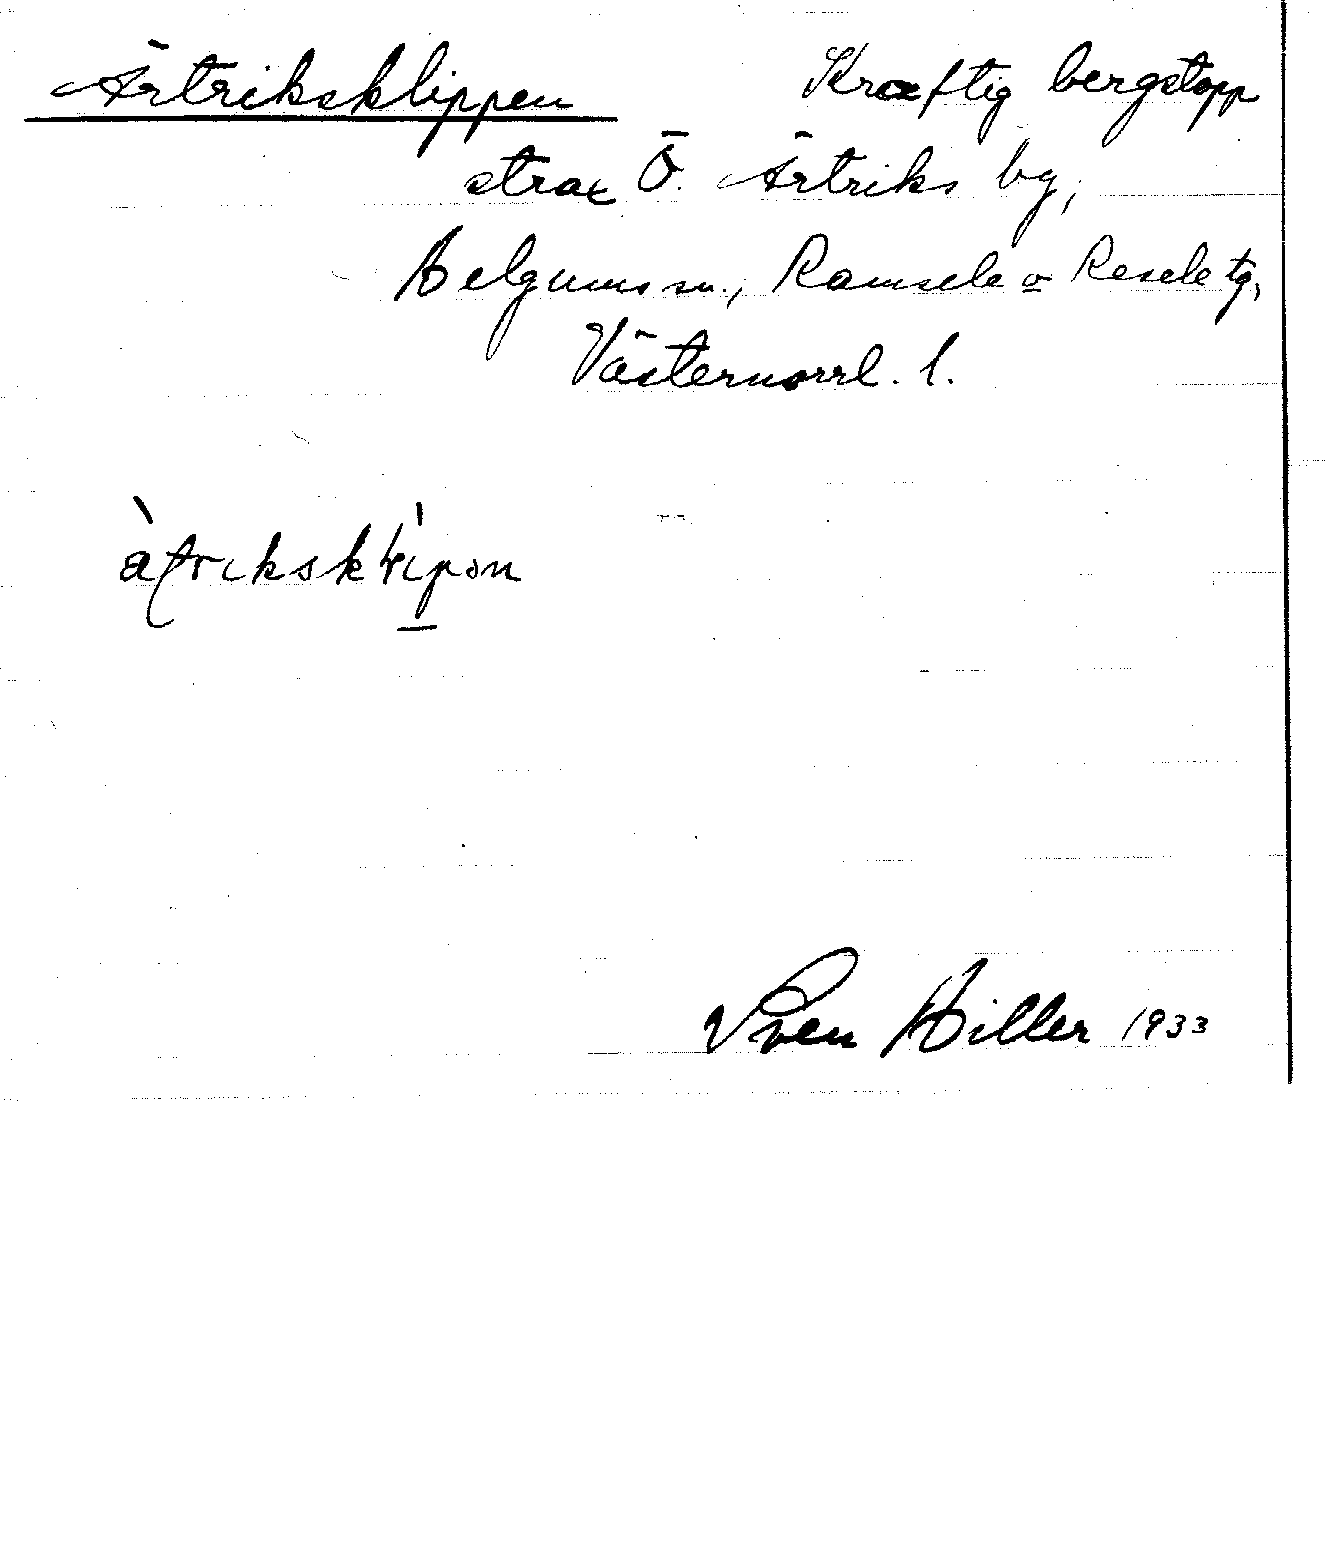 Ärtriksklippen Kraftig bergstopp
strax Ö. Ärtriks by,
Helgums sn., Ramsele o Resele tg,
Västernorrl. l.
Sven Hiller 1933